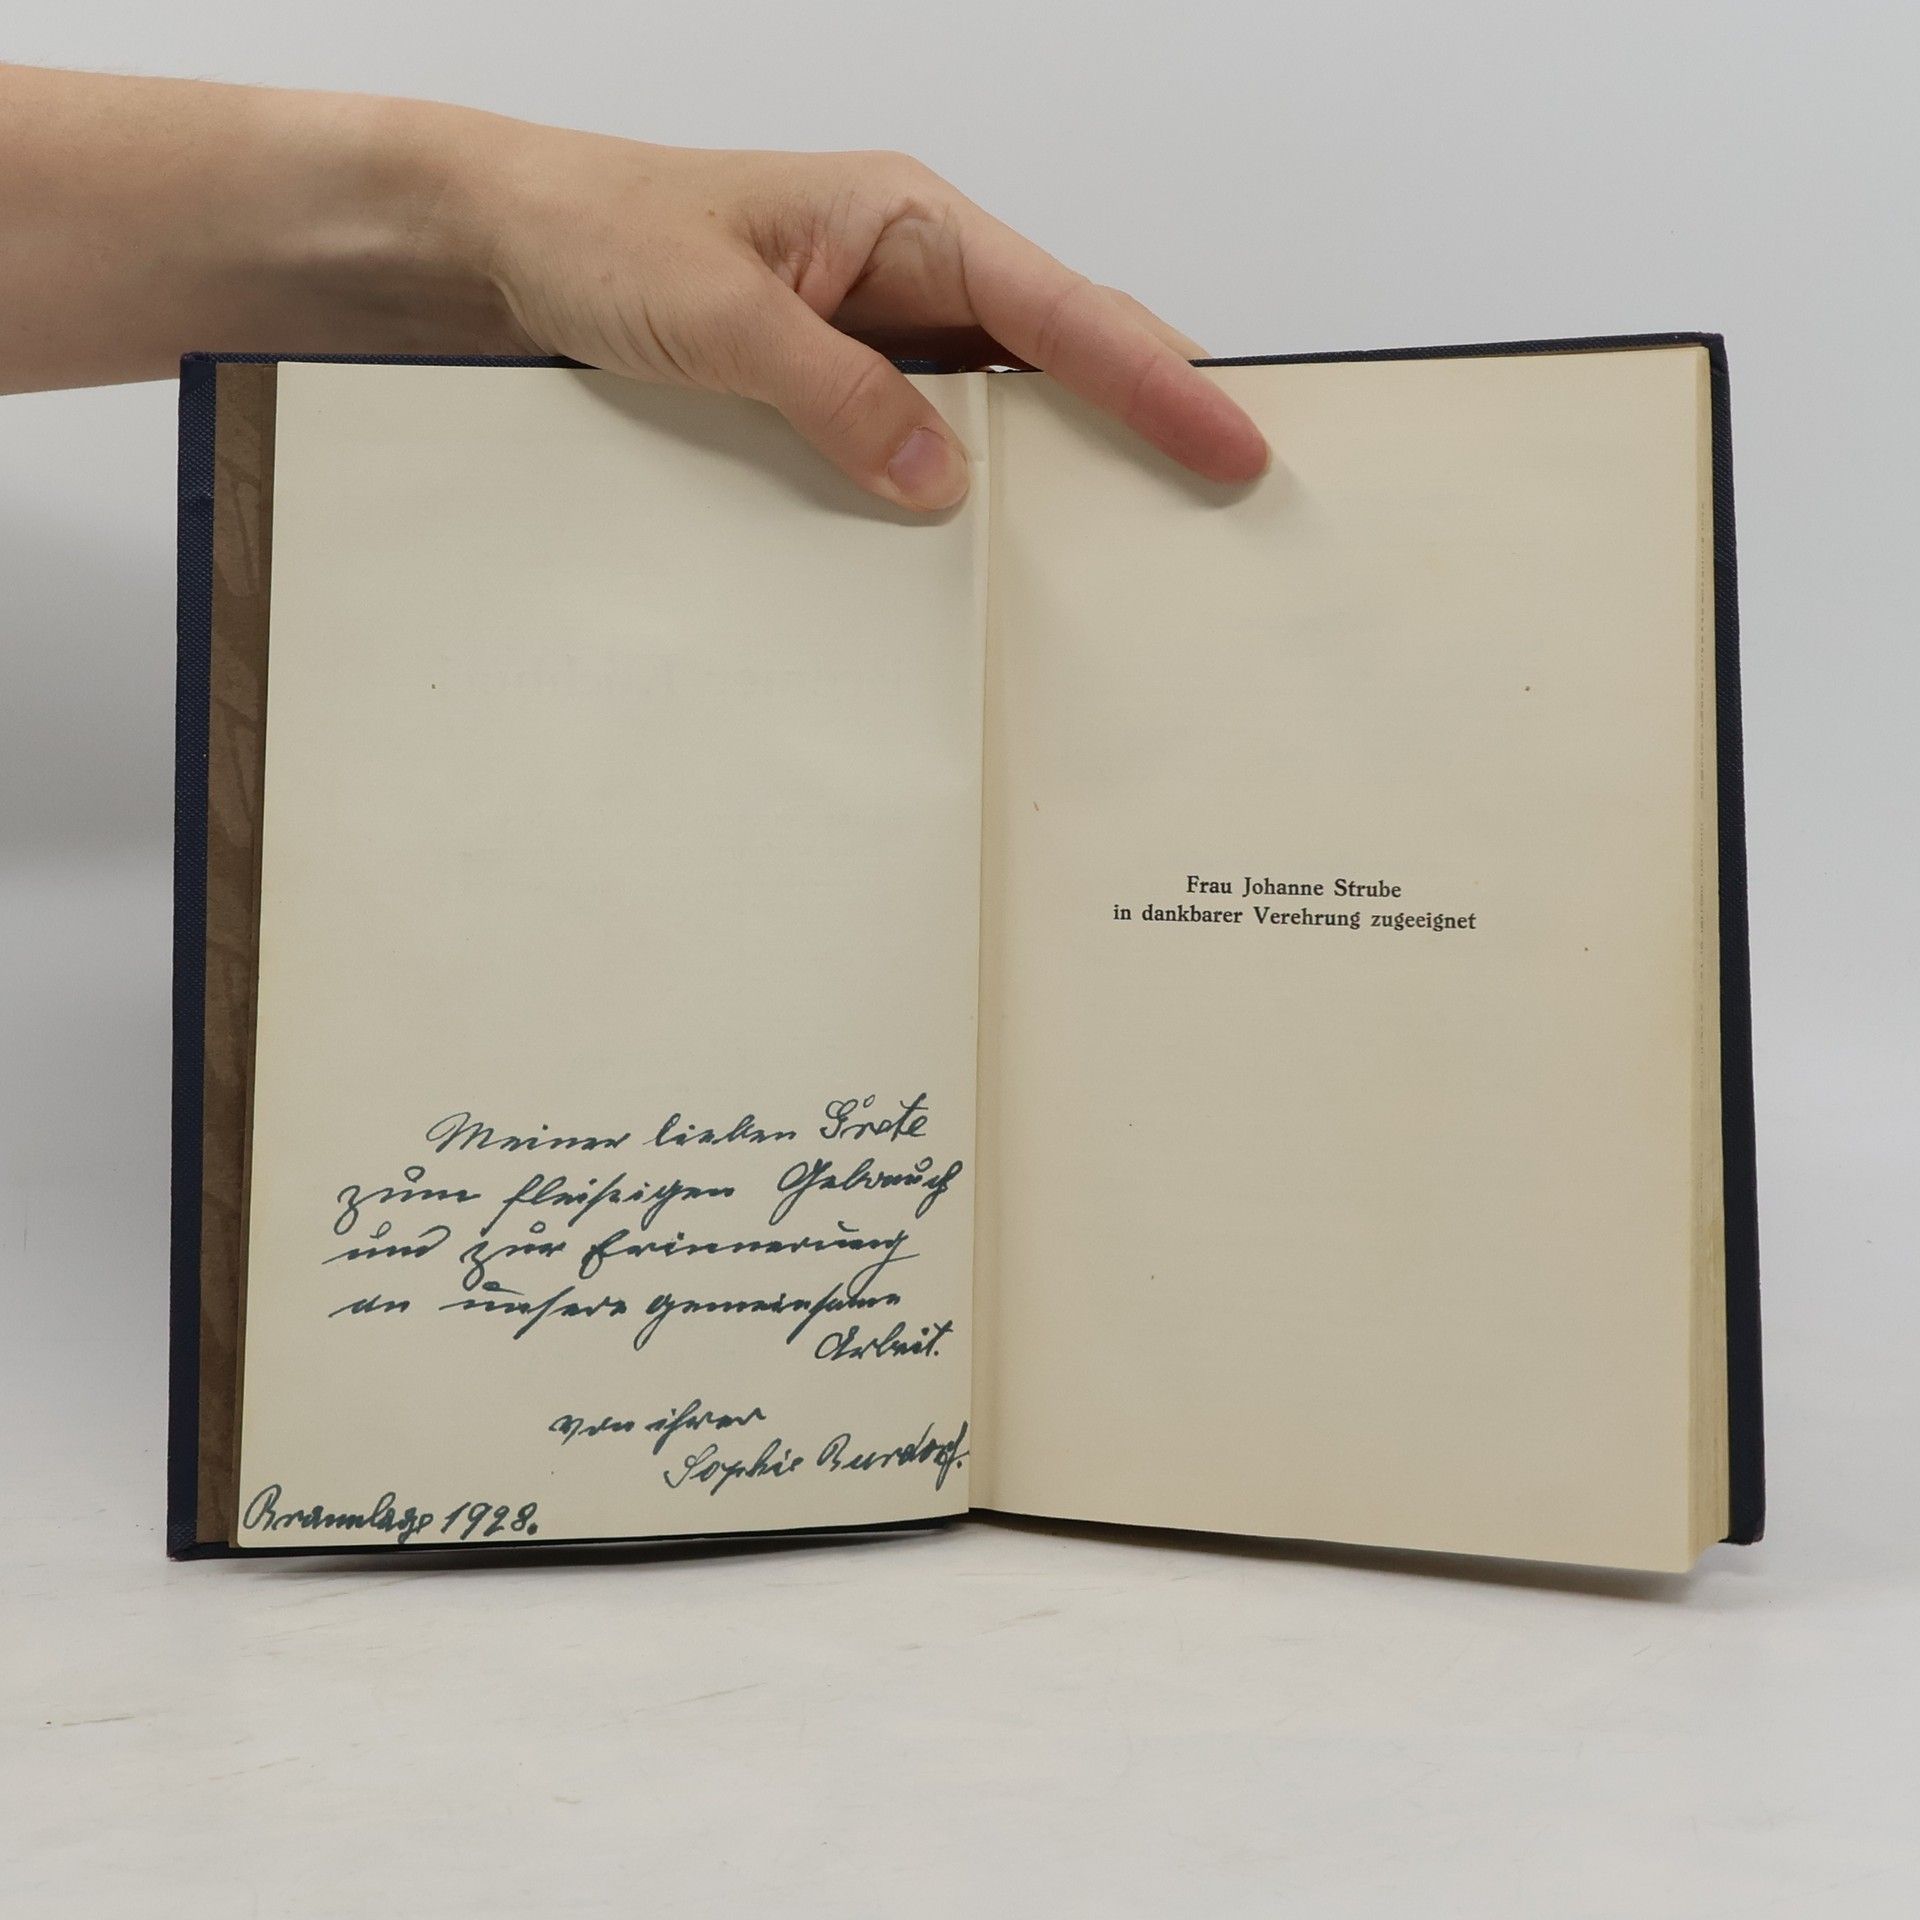 Meiner lieben Grete
zum fleißigen Gebrauch
und zur Erinnerung
an unsere gemeinsame
Arbeit.
von ihrer
Sophie Burdorf.
Braunlage 1928.
Frau Johanne Strube
in dankbarer Verehrung zugeeignet